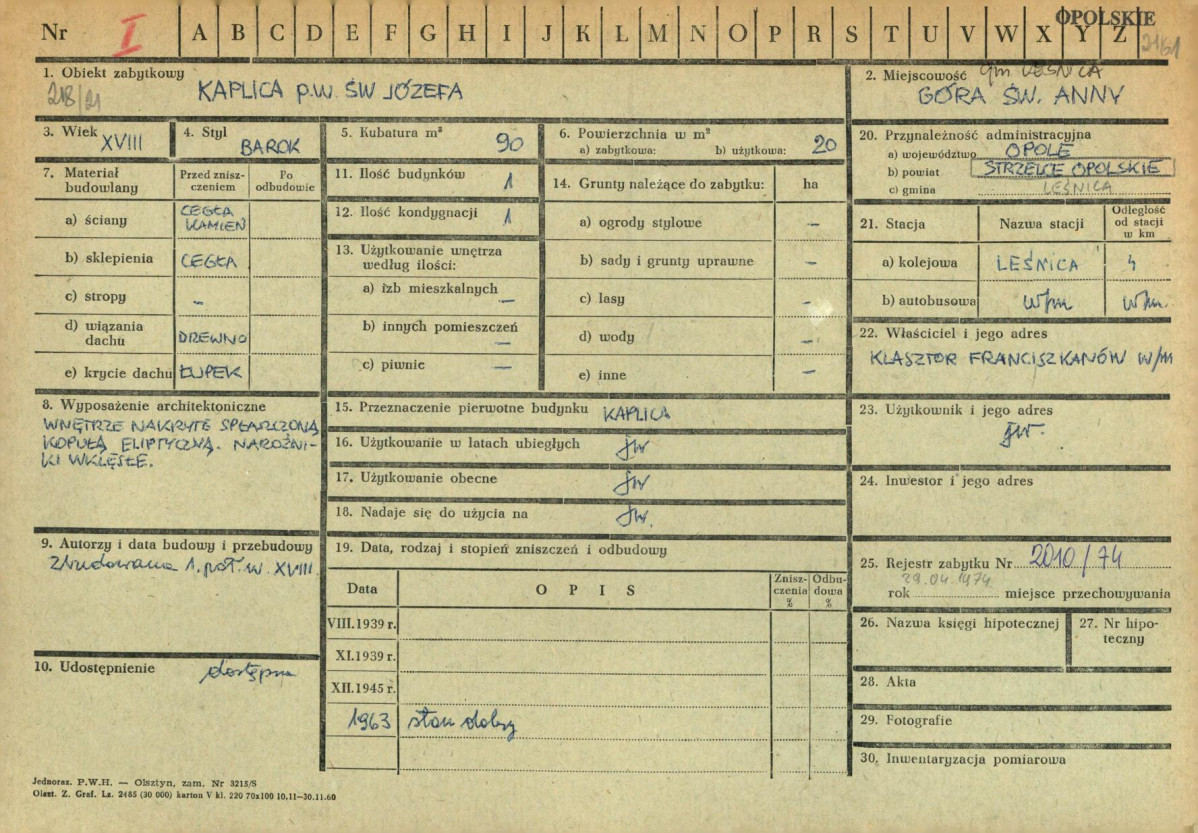 OPOLSKIE
Nr I A B C D E F G H I J K L M N O P R S T U V W X Y Z
2161
1. Obiekt zabytkowy
218/21
KAPLICA P.W. ŚW JÓZEFA
2. Miejscowość gm LEŚNICA
GÓRA ŚW. ANNY
3. Wiek XVIII
4. Styl BAROK
5. Kubatura m³ 90
6. Powierzchnia w m²
a) zabytkowa: b) użytkowa: 20
20. Przynależność administracyjna
a) województwo OPOLE
b) powiat STRZELCE OPOLSKIE
c) gmina LEŚNICA
7. Materiał budowlany
Przed zniszczeniem
Po odbudowie
a) ściany CEGŁA KAMIEŃ
b) sklepienia CEGŁA
c) stropy -
d) wiązania dachu DREWNO
e) krycie dachu ŁUPEK
11. Ilość budynków 1
12. Ilość kondygnacji 1
13. Użytkowanie wnętrza
według ilości:
a) izb mieszkalnych —
b) innych pomieszczeń —
c) piwnic —
14. Grunty należące do zabytku: ha
a) ogrody stylowe —
b) sady i grunty uprawne —
c) lasy -
d) wody —
e) inne —
21. Stacja
Nazwa stacji
Odległość od stacji w km
a) kolejowa LEŚNICA 4
b) autobusowa w/m w/m.
22. Właściciel i jego adres
KLASZTOR FRANCISZKANÓW W/M
8. Wyposażenie architektoniczne
WNĘTRZE NAKRYTE SPŁASZCZONĄ
KOPUŁĄ ELIPTYCZNĄ. NAROŻNI-
KI WKLĘSŁE.
15. Przeznaczenie pierwotne budynku KAPLICA
16. Użytkowanie w latach ubiegłych jw
17. Użytkowanie obecne jw
18. Nadaje się do użycia na jw.
23. Użytkownik i jego adres
jw.
24. Inwestor i jego adres
9. Autorzy i data budowy i przebudowy
Zbudowana 1. poł. w. XVIII
10. Udostępnienie dostępna
19. Data, rodzaj i stopień zniszczeń i odbudowy
Data
OPIS
Zniszczenia %
Odbudowa %
VIII.1939 r.
XI.1939 r.
XII.1945 r.
1963 stan dobry
25. Rejestr zabytku Nr 2010/74
29.04.1974
rok miejsce przechowywania
26. Nazwa księgi hipotecznej
27. Nr hipo-
teczny
28. Akta
29. Fotografie
30. Inwentaryzacja pomiarowa
Jednoraz. P.W.H. — Olsztyn, zam. Nr 3215/S
Olszt. Z. Graf. Lz. 2485 (30 000) karton V kl. 220 70x100 10.11—30.11.60